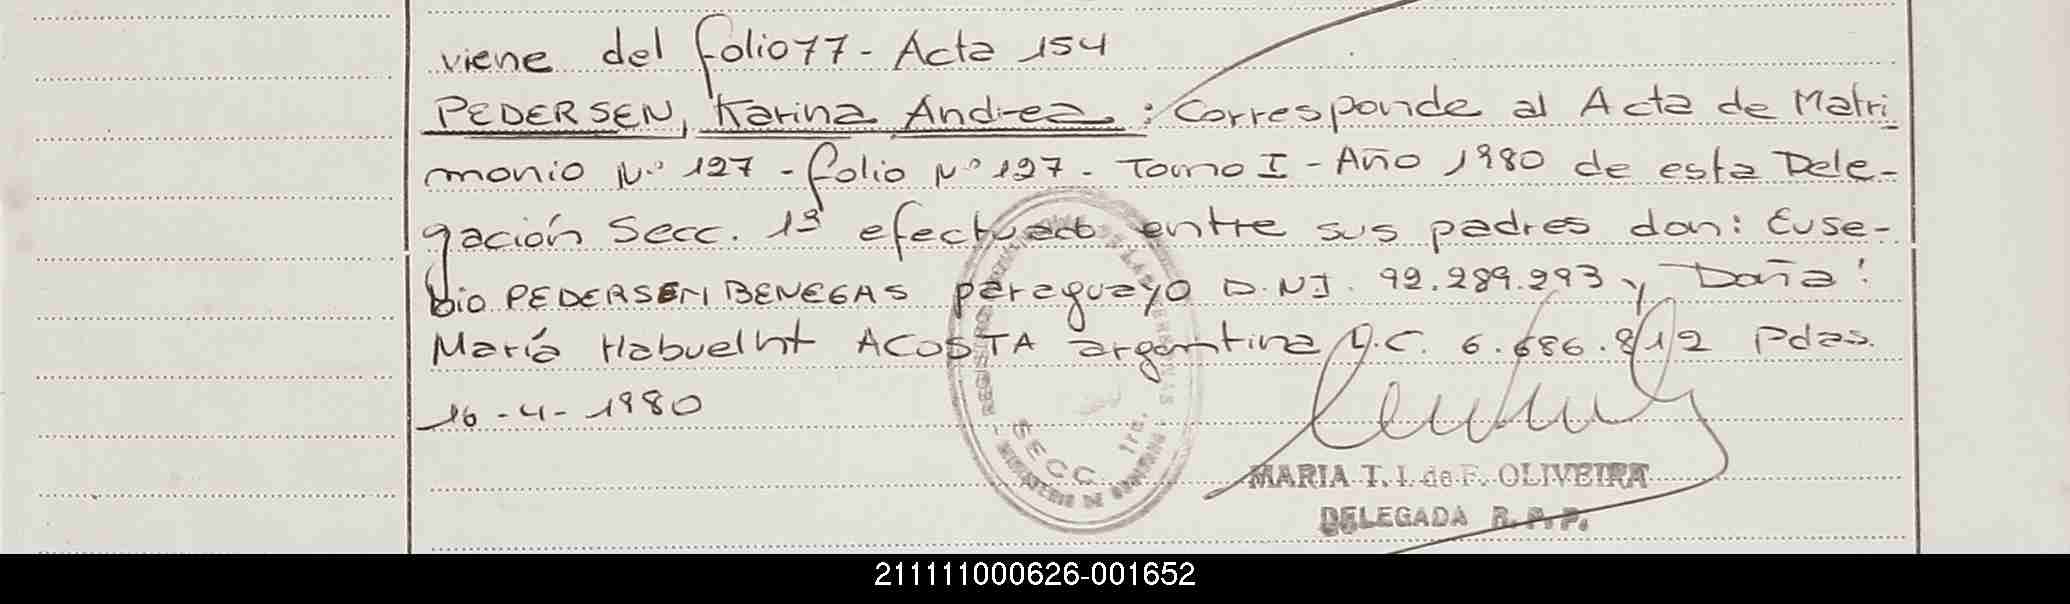 viene del folio 77 - Acta 154
PEDERSEN, Karina Andrea : Corresponde al Acta de Matri
monio Nº 127 - folio Nº 127 - Tomo I - Año 1980 de esta Dele-
gación Secc. 1ª efectuado entre sus padres don: Euse-
bio PEDERSEN BENEGAS paraguayo D.NI. 92.289.293 y Doña:
María ACOSTA argentina 6.686.812 Pdas.
16-4-1980
SECC. 1ra.
MARIA T. I. de F. OLIVEIRA
DELEGADA R. P. P.
211111000626-001652